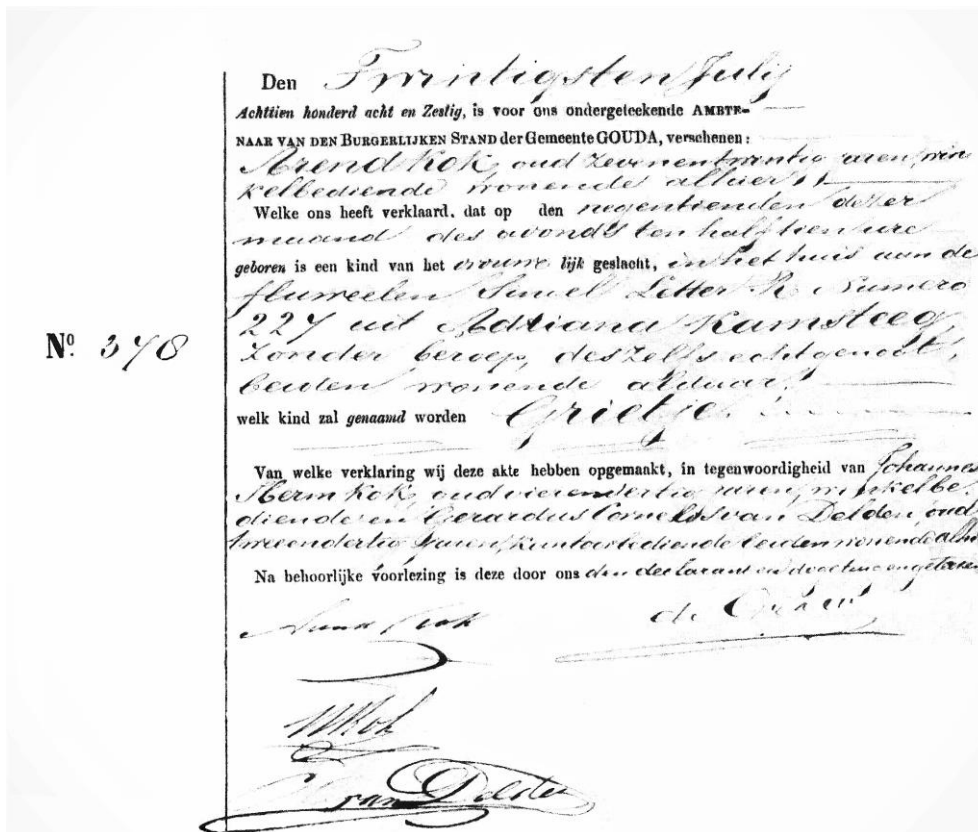 Den Twintigsten Julij
Achttien honderd acht en Zestig, is voor ons ondergeteekende AMBTE-
NAAR VAN DEN BURGERLIJKEN STAND der Gemeente GOUDA, verschenen:
Arend Kok, oud zevenentwintig jaren, win
kelbediende wonende alhier
Welke ons heeft verklaard, dat op den negentienden dezer
maand des avonds ten half tien ure
geboren is een kind van het vrouwe lijk geslacht, in het huis aan de
fluweelen Singel Letter R Numero
227 uit Adriana Kamsteeg,
zonder beroep, deszelfs echtgenoot,
beiden wonende aldaar,
welk kind zal genaamd worden Grietje.
Nº. 378
Van welke verklaring wij deze akte hebben opgemaakt, in tegenwoordigheid van Johannes
Herm Kok, oud vierendertig jaren, winkelbe-
diende en Gerardus Cornelis van Delden, oud
tweeendertig jaren, kantoorbediende beiden wonende alhier
Na behoorlijke voorlezing is deze door ons den declarant en de getuigen geteekend
Arend Kok
HKok
van Delden